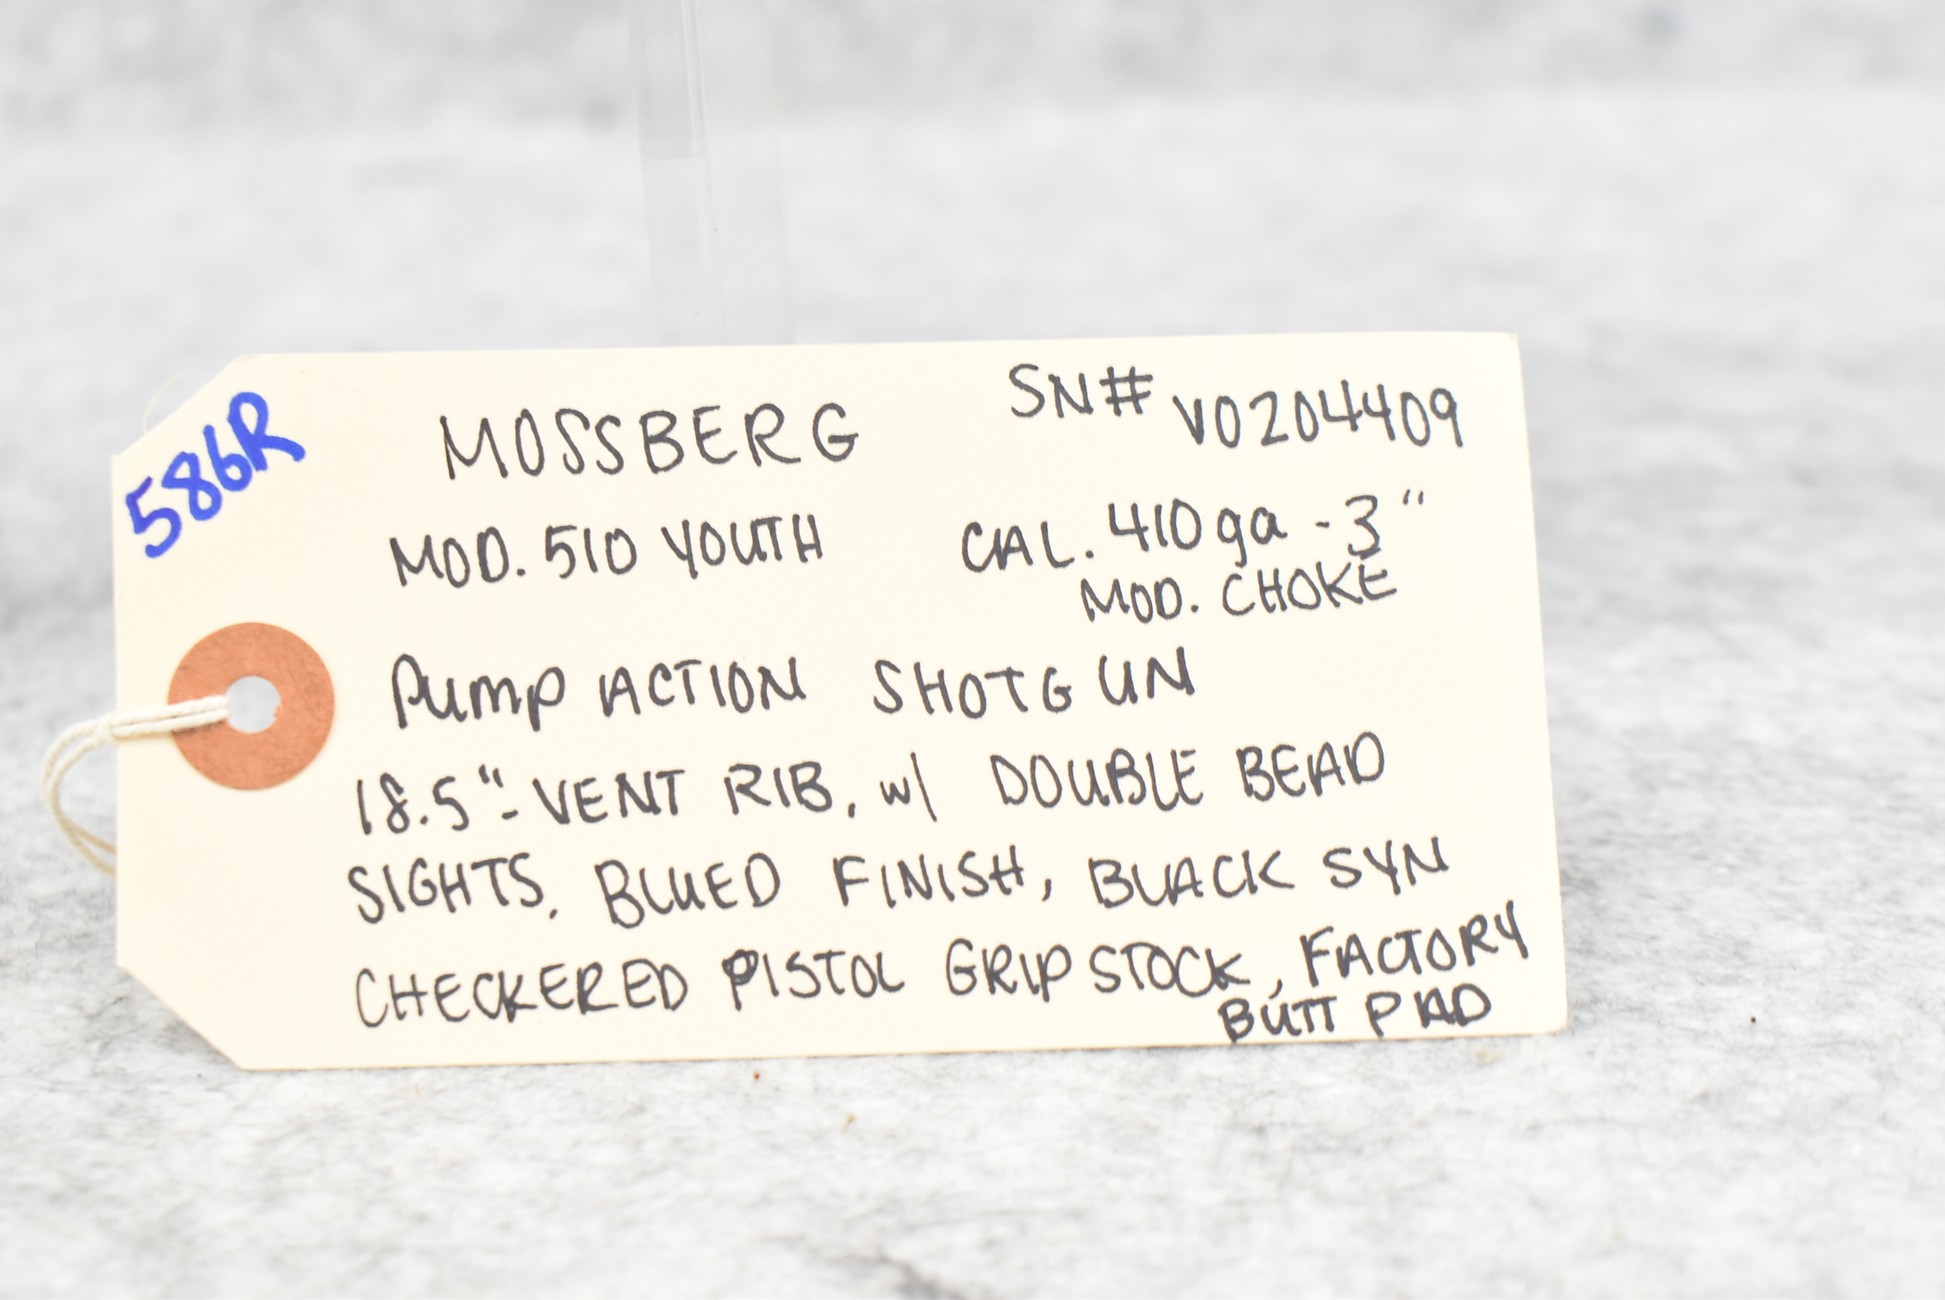 586R
MOSSBERG SN# V0204409
MOD. 510 YOUTH CAL. 410ga - 3"
MOD. CHOKE
PUMP ACTION SHOTGUN
18.5"- VENT RIB, w/ DOUBLE BEAD
SIGHTS, BLUED FINISH, BLACK SYN
CHECKERED PISTOL GRIP STOCK, FACTORY
BUTT PAD